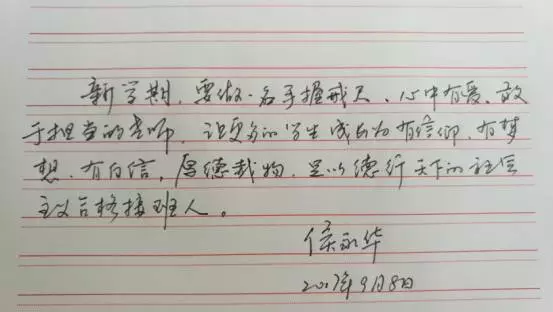 新学期,要做一名手握戒尺、心中有爱、敢
于担当的老师,让更多的学生成长为有信仰、有梦
想、有自信,厚德载物,足以德行天下的社会
主义合格接班人。
侯永华
2017年9月8日